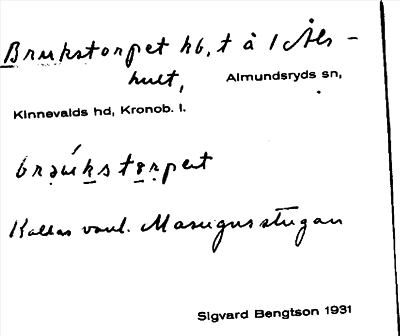 Brukstorpet hb, t å 1 Åls-
hult, Almundsryds sn,
Kinnevalds hd, Kronob. l.
brəúkstɵrpət
Kallas vanl. Masugnsstugan
Sigvard Bengtson 1931